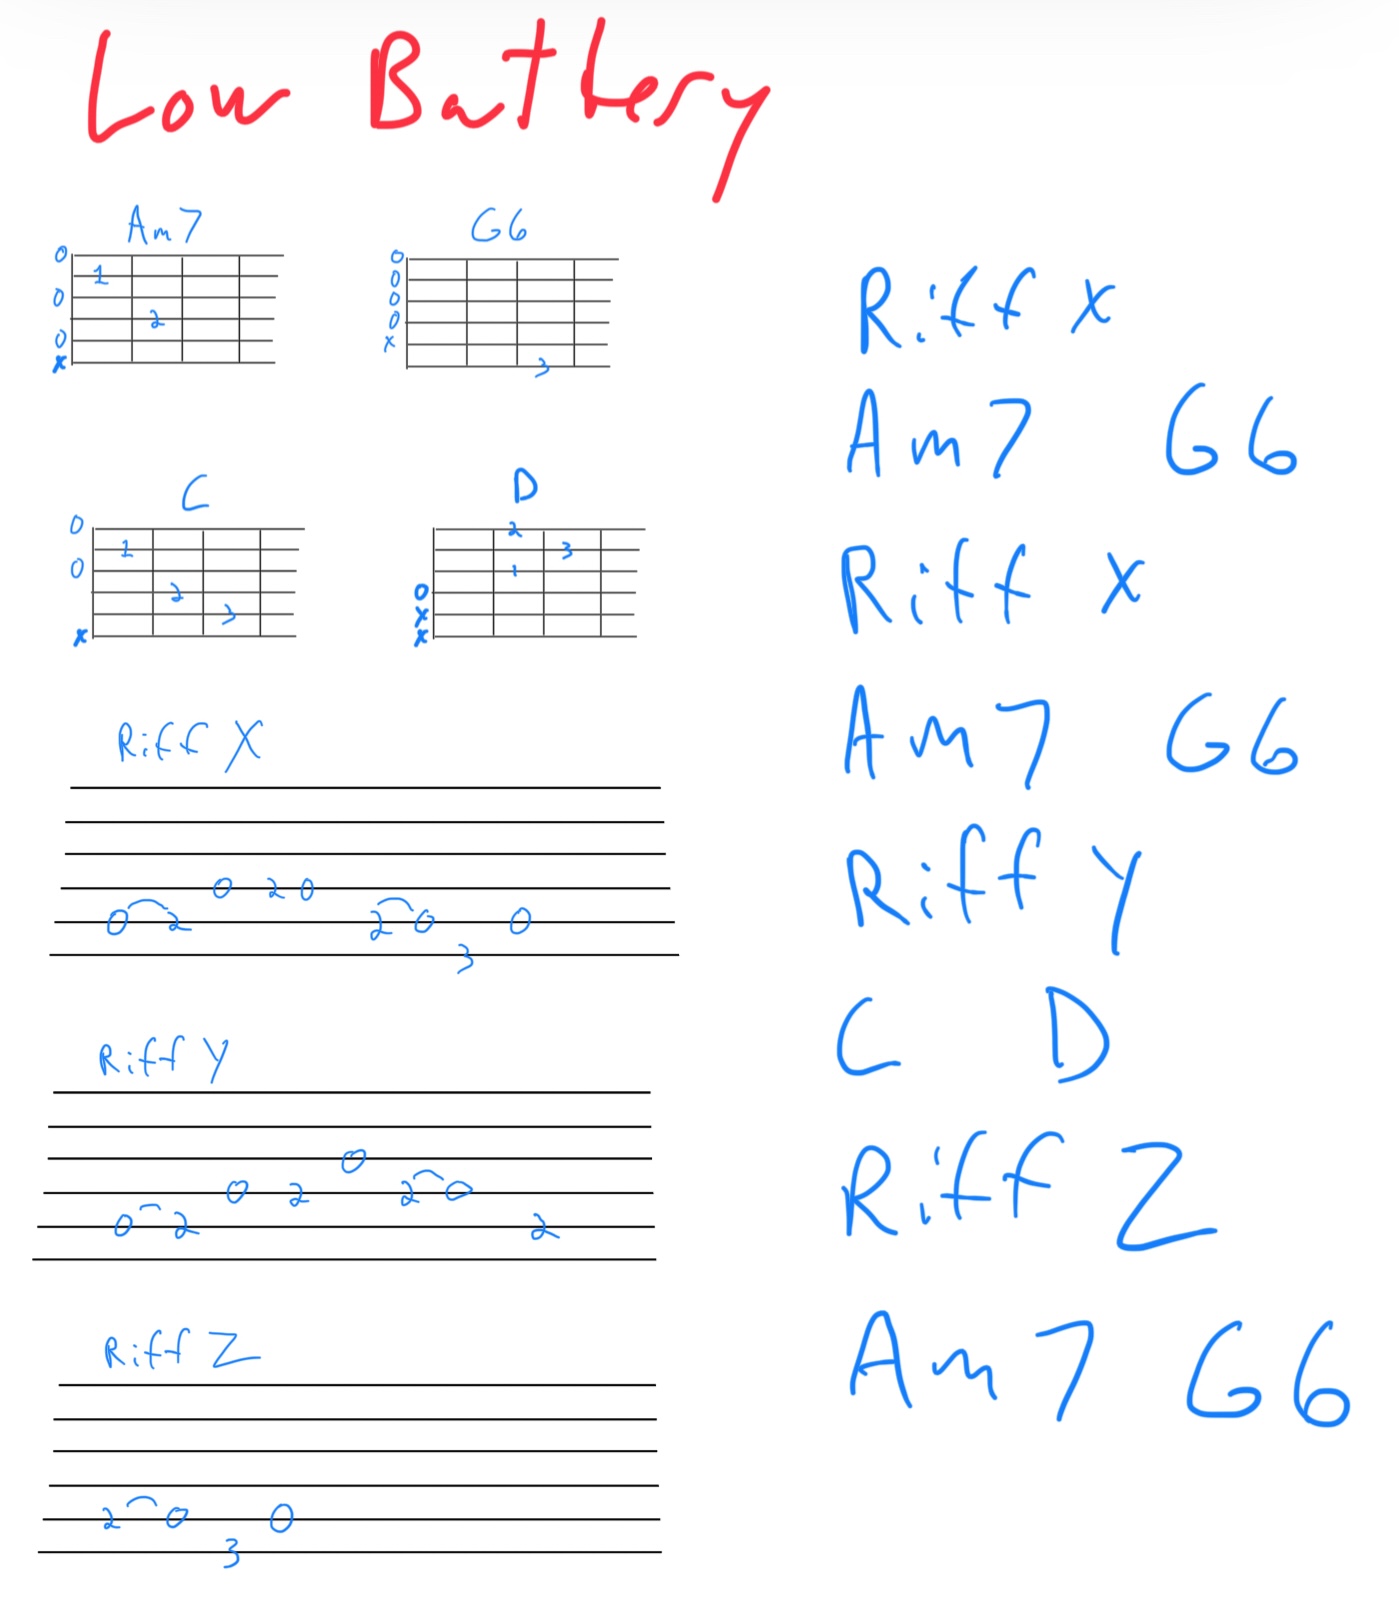 Low Battery
Am7 G6
0 1 0 2 0 x
0 0 0 0 x 3
C D
0 1 0 2 3 x
2 3 1 0 x x
Riff X
0 2 0 2 0 2 0 3 0
Riff Y
0 2 0 2 0 2 0 2
Riff Z
2 0 3 0
Riff x
Am7 G6
Riff x
Am7 G6
Riff Y
C D
Riff Z
Am7 G6